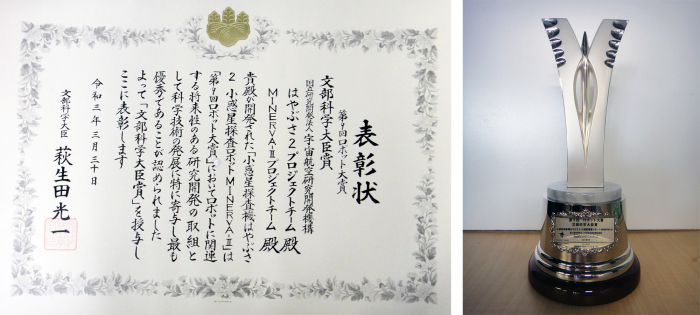 表彰状
第9回ロボット大賞
文部科学大臣賞
国立研究開発法人宇宙航空研究開発機構
はやぶさ2プロジェクトチーム 殿
MINERVA-Ⅱプロジェクトチーム 殿
貴殿が開発された「小惑星探査機はやぶさ
2 小惑星探査ロボットMINERVA-Ⅱ」は
「第9回ロボット大賞」においてロボットに関連
する将来性のある研究開発の取組と
して科学技術の発展に特に寄与し最も
優秀であることが認められました
よって「文部科学大臣賞」を授与し
ここに表彰します
令和三年三月三十日
文部科学大臣 萩生田光一